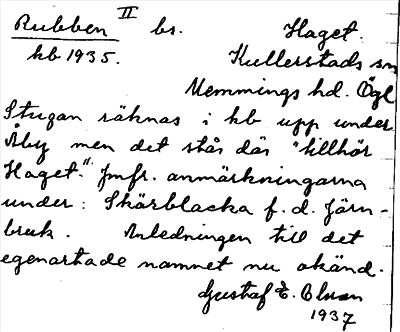 Rubben II bs. Haget.
kb 1935. Kullerstads sn
Memmings hd. Ögl
Stugan räknas i kb upp under
Åby men det står där "tillhör
Haget." Jmfr. anmärkningarna
under: Skärblacka f. d. Järn-
bruk. Anledningen till det
egenartade namnet nu okänd.
Gustaf E. Olson
1937